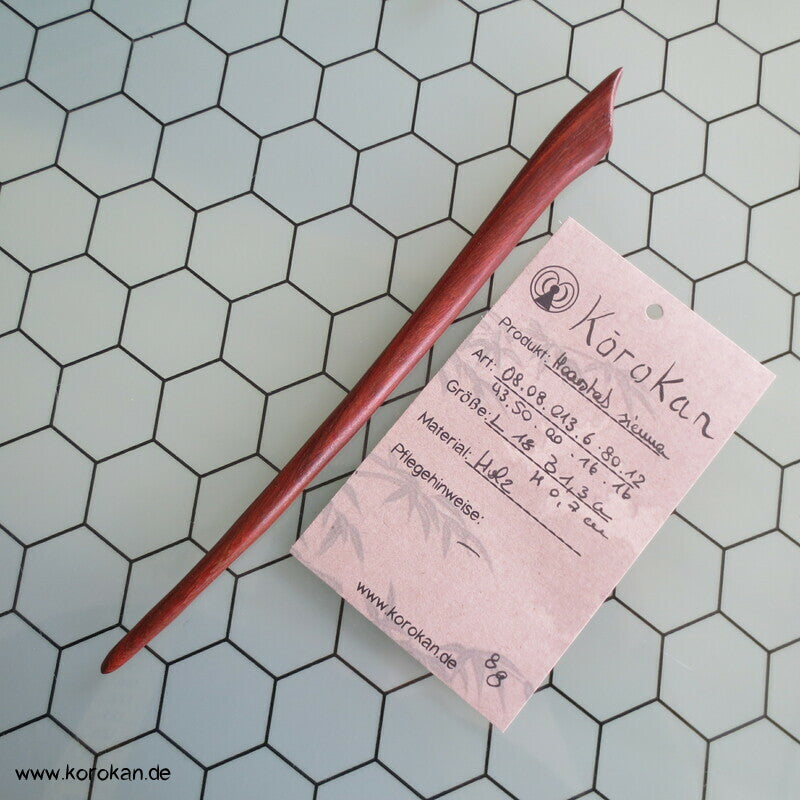 Kōrokan
Produkt: Haarstab sienna
Art: 08.08.013.6.80.12
43.50.00.16.16
Größe: L 18 B 1,3 cm
H 0,7 cm
Material: Holz
Pflegehinweise:
–
www.korokan.de
88
www.korokan.de